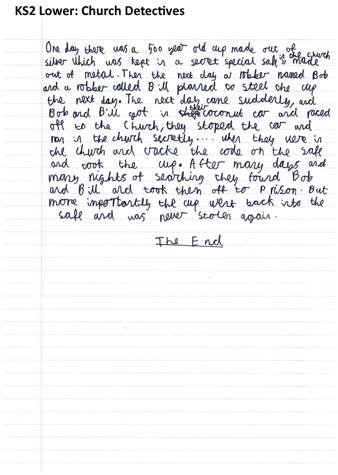 KS2 Lower: Church Detectives
One day there was a 500 year old cup made out of
silver which was kept in a secret special safe in the church made
out of metal. Then the next day a robber named Bob
and a robber called Bill planed to steel the cup
the next day. The next day came suddenly, and
Bob and Bill got in their coconut car and raced
off to the Church, they stoped the car and
ran in the church secretly... when they were in
the church and cracke the code on the safe
and took the cup. After many days and
many nights of searching they found Bob
and Bill and took them off to Prison. But
more inportantly the cup went back into the
safe and was never stolen again.
The End